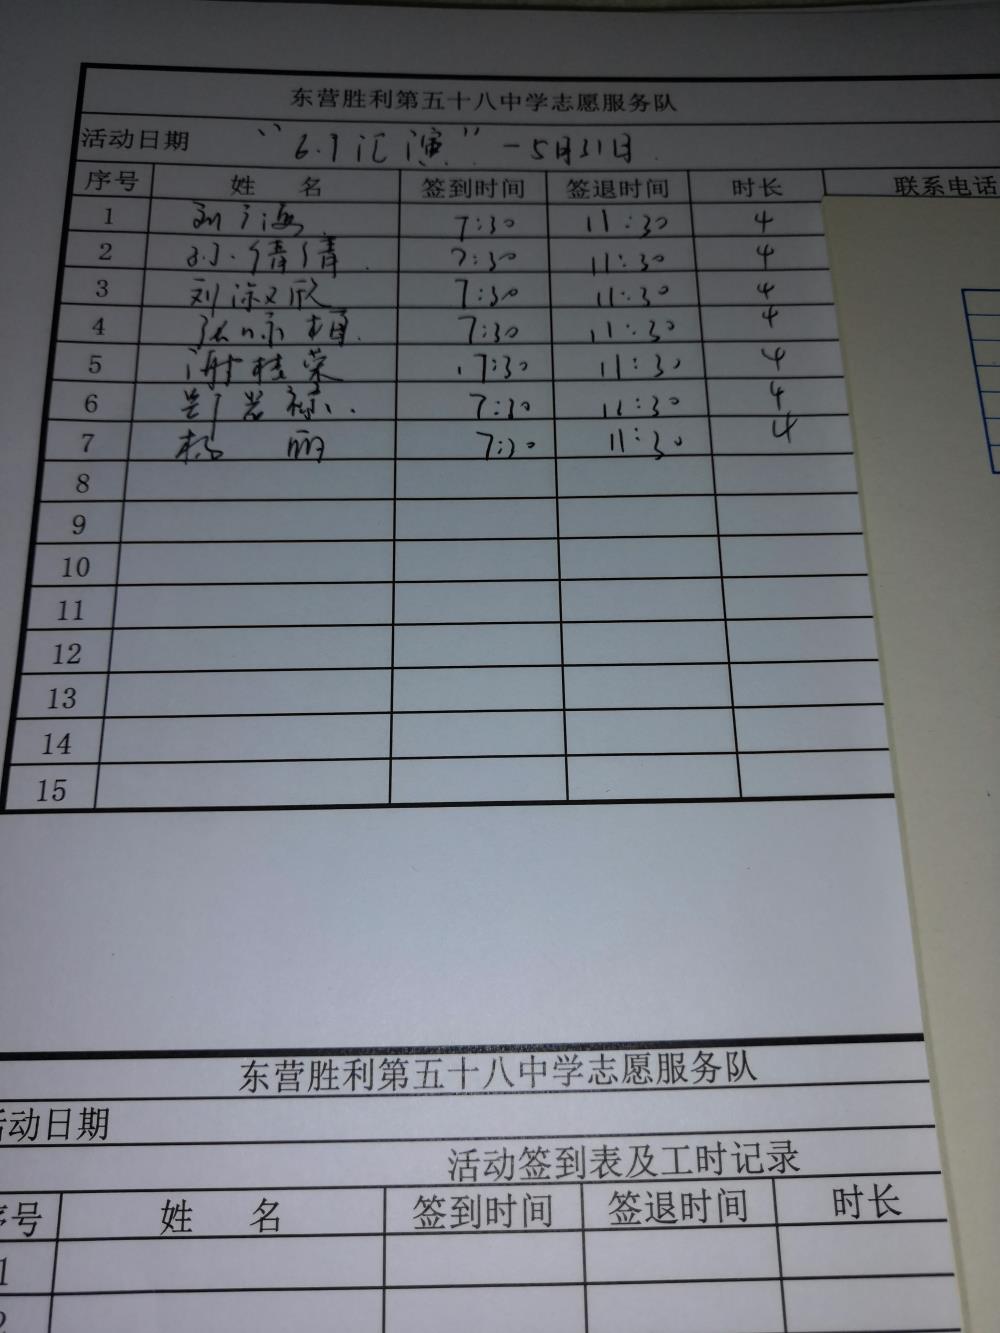 东营胜利第五十八中学志愿服务队
活动日期 "6.1汇演"-5月31日
序号 姓 名 签到时间 签退时间 时长 联系电话
1 刘广海 7:30 11:30 4
2 孙倩倩 7:30 11:30 4
3 刘淑欣 7:30 11:30 4
4 7:30 11:30 4
5 谢桂荣 7:30 11:30 4
6 7:30 11:30 4
7 杨 丽 7:30 11:30 4
8
9
10
11
12
13
14
15
东营胜利第五十八中学志愿服务队
活动日期
活动签到表及工时记录
序号 姓 名 签到时间 签退时间 时长
1
2